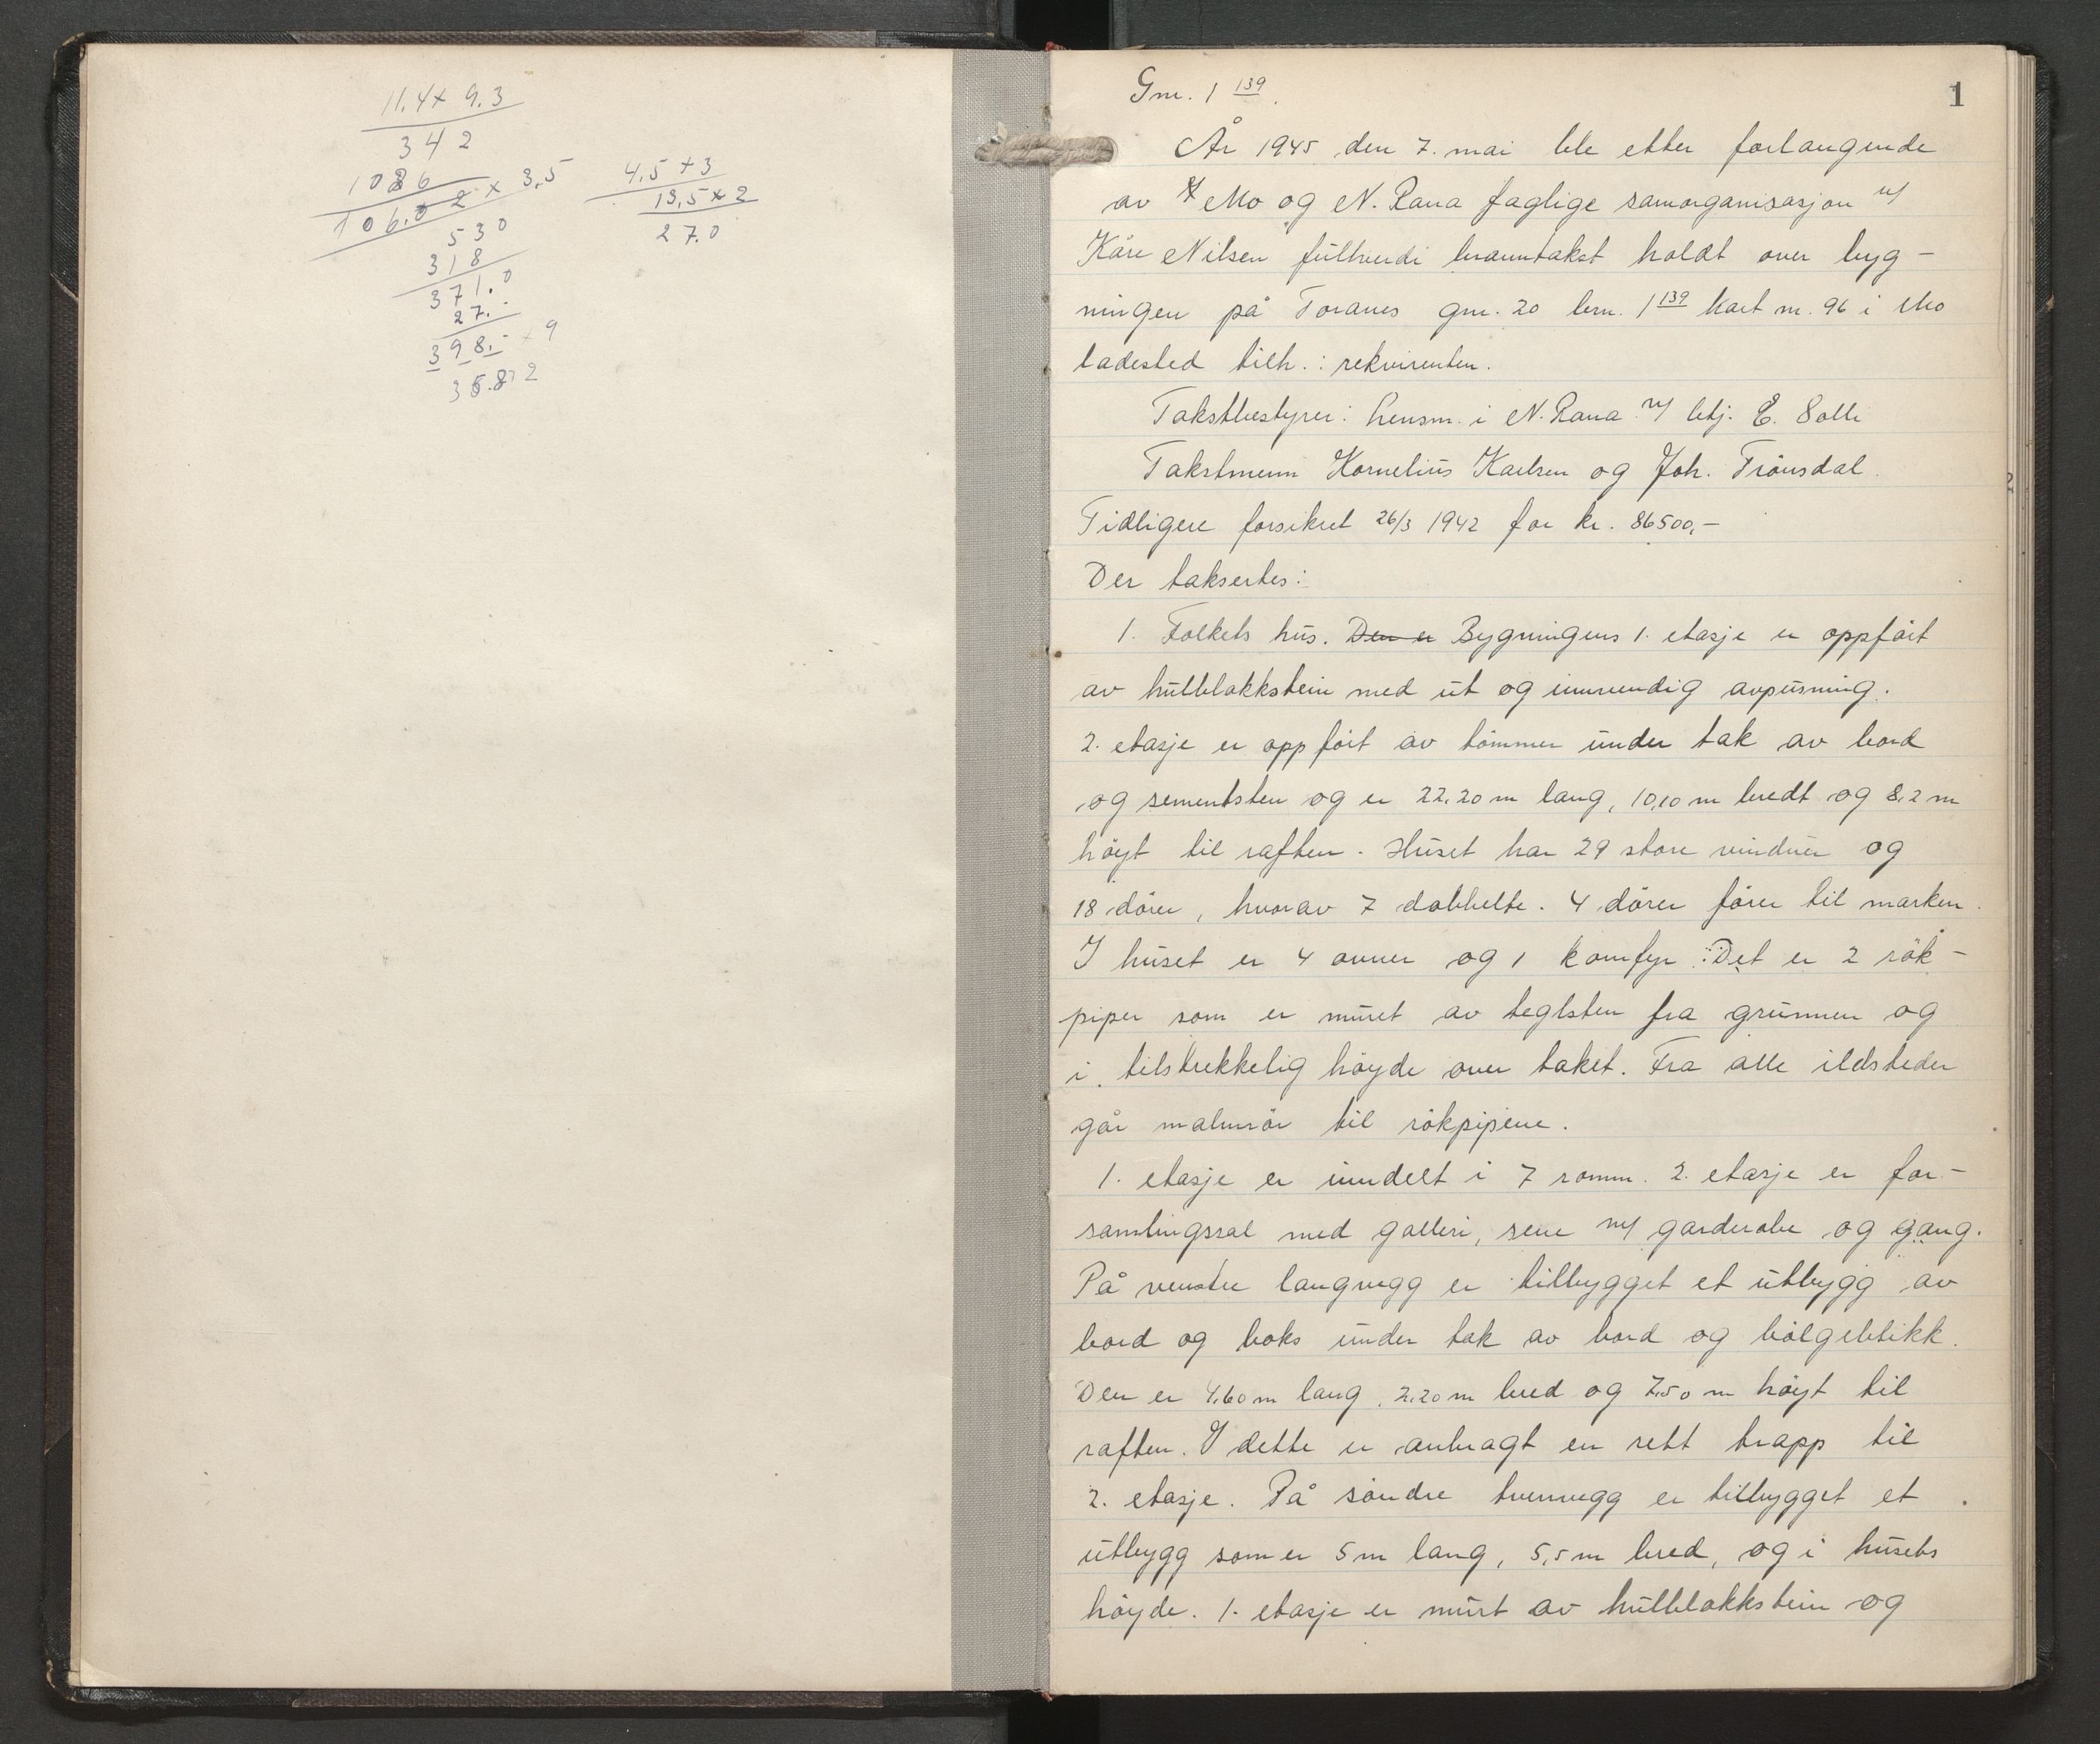 11.4 x 9.3
342
1026
106.02 x 3,5
530
318
371.0
27.-
398.- x 9
35.82
4.5 + 3
13,5 x 2
27.0
Gnr. 1 139.
1
År 1945 den 7. mai ble etter forlangende
av Mo og N. Rana faglige samorganisasjon v/
Kåre Nilsen fullverdi branntakst holdt over byg-
ningen på Toranes gnr. 20 brn. 1 139 kart nr. 96 i Mo
ladested tilh.: rekvirenten.
Takstbestyrer: Lensm. i N. Rana v/ btj. E. Solli
Takstmenn Kornelius Karlsen og Joh. Trönsdal.
Tidligere forsikret 26/3 1942 for kr. 86500,-
Der taksertes:
1. Folkets hus. Den er Bygningens 1. etasje er oppført
av hulblokkstein med ut og innvendig avpusning.
2. etasje er oppført av tömmer under tak av bord
og sementsten og er 22,20 m lang, 10,10 m bredt og 8,2 m
höyt til raften. Huset har 29 store vinduer og
18 dörer, hvorav 7 dobbelte. 4 dörer förer til marken.
I huset er 4 ovner og 1 komfyr. Det er 2 rök-
piper som er muret av teglsten fra grunnen og
i tilstrekkelig höyde over taket. Fra alle ildsteder
går malmrör til rökpipene.
1. etasje er inndelt i 7 romm. 2. etasje er for-
samlingssal med galleri, sene m/ garderobe og gang.
På venstre langvegg er tilbygget et utbygg av
bord og boks under tak av bord og bölgeblikk.
Den er 4,60 m lang, 2,20 m bred og 7,50 m höyt til
raften. I dette er anbragt en rett trapp til
2. etasje. På söndre tverrvegg er tilbygget et
utbygg som er 5 m lang, 5,5 m bred, og i husets
höyde. 1. etasje er murt av hulblokkstein og
2